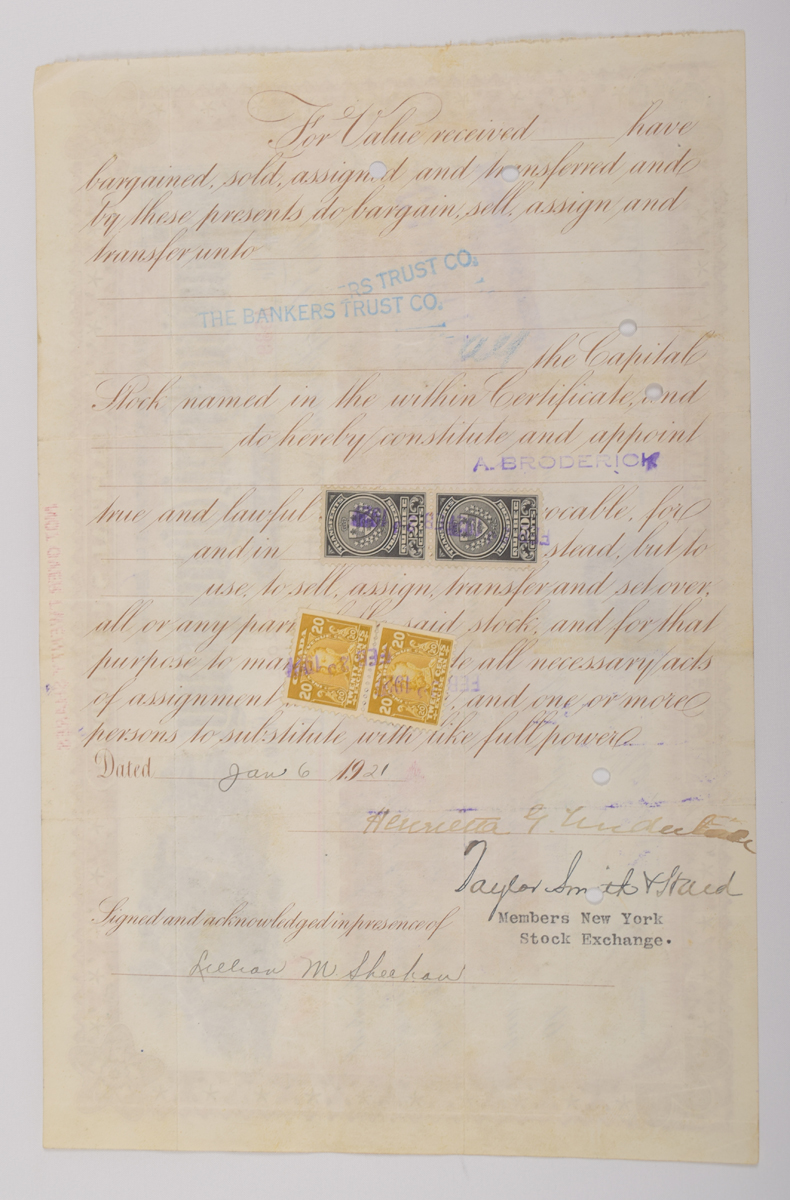 For Value received have
bargained, sold, assigned and transferred and
by these presents do bargain, sell, assign and
transfer unto
RS TRUST CO.
THE BANKERS TRUST CO.
the Capital
Stock named in the within Certificate, and
do hereby constitute and appoint
A. BRODERICK
true and lawful ocable, for
and in stead, but to
use, to sell, assign, transfer and set over,
all or any part said stock, and for that
purpose to ma all necessary acts
of assignment and one or more
persons to substitute with like full power
20 CENTS
20 CENTS
20 20
20 20
TWENTY CENTS
FEB
FEB
Dated Jan 6 1921
Henrietta G.
Taylor Smith &
Members New York
Stock Exchange.
Signed and acknowledged in presence of
Lillian M Sheehan